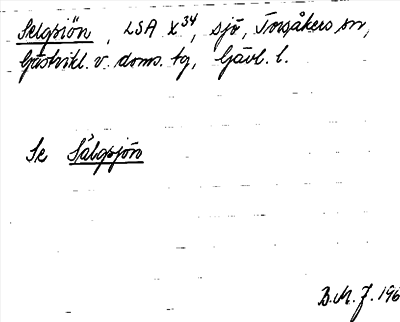 Selgsjön, LSA X34, sjö, Torsåkers sn,
Gästrikl. v. doms. tg, Gävl. l.
Se Sälgsjön
B.M.J. 196